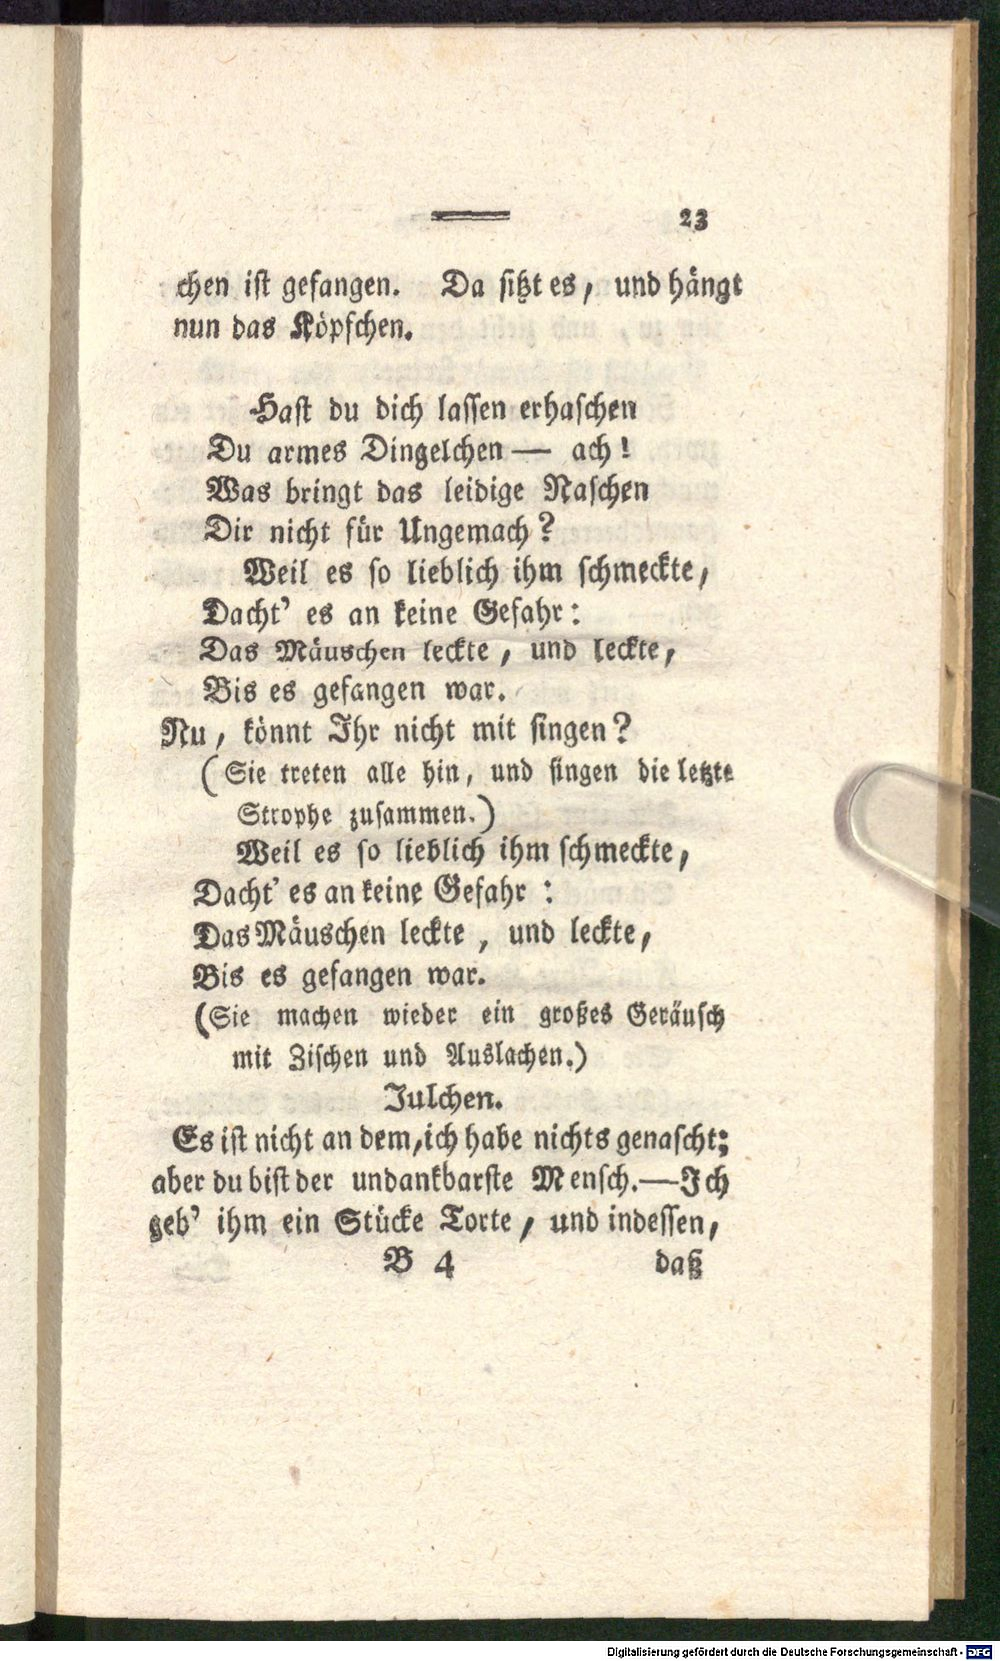 23
chen ist gefangen. Da sitzt es, und hängt
nun das Köpfchen.
Hast du dich lassen erhaschen
Du armes Dingelchen — ach!
Was bringt das leidige Naschen
Dir nicht für Ungemach?
Weil es so lieblich ihm schmeckte,
Dacht' es an keine Gefahr:
Das Mäuschen leckte, und leckte,
Bis es gefangen war.
Nu, könnt Ihr nicht mit singen?
(Sie treten alle hin, und singen die letzte
Strophe zusammen.)
Weil es so lieblich ihm schmeckte,
Dacht' es an keine Gefahr:
Das Mäuschen leckte, und leckte,
Bis es gefangen war.
(Sie machen wieder ein großes Geräusch
mit Zischen und Auslachen.)
Julchen.
Es ist nicht an dem, ich habe nichts genascht;
aber du bist der undankbarste Mensch.—Ich
geb' ihm ein Stücke Torte, und indessen,
B 4 daß
Digitalisierung gefördert durch die Deutsche Forschungsgemeinschaft - DFG